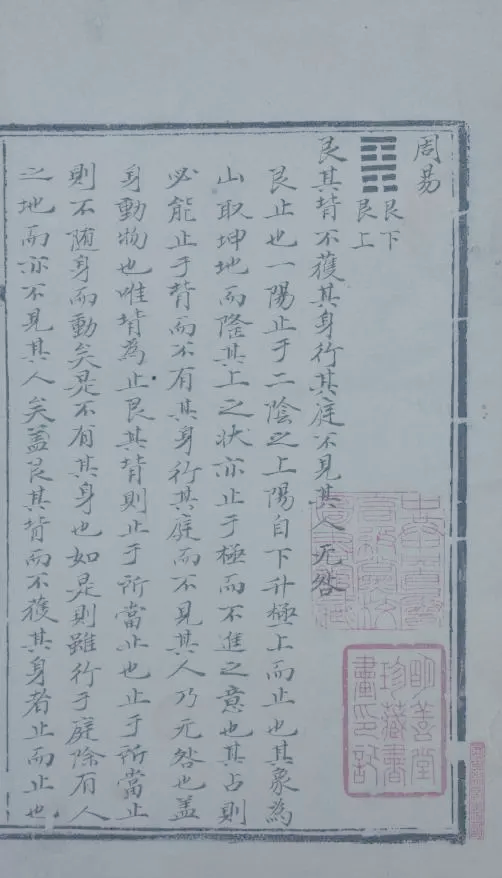 周易
䷳艮下
艮上
艮其背不獲其身行其庭不見其人无咎
艮止也一陽止于二陰之上陽自下升極上而止也其象為
山取坤地而隆其上之狀亦止于極而不進之意也其占則
必能止于背而不有其身行其庭而不見其人乃无咎也蓋
身動物也唯背為止艮其背則止于所當止也止于所當止
則不随身而動矣是不有其身也如是則雖行于庭除有人
之地而亦不見其人矣蓋艮其背而不獲其身者止而止也
明善堂
珍藏書
畫印記